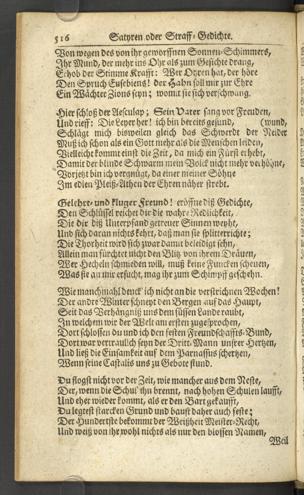 516 Satyren oder Straff-Gedichte.
Von wegen des von ihr geworffnen Sonnen-Schimmers,
Ihr Mund, der mehr ins Ohr als zum Gesichte drang,
Erhob der Stimme Krafft: Wer Ohren hat, der höre
Den Spruch Eusebiens! der Hahn soll mir zur Ehre
Ein Wächter Zions seyn; womit sie sich verschwang.
Hier schloß der Aesculap; Sein Vater sang vor Freuden,
Und rieff: Die Leyer her! ich bin bereits gesund, (wund,
Schlägt mich bisweilen gleich das Schwerdt der Neider
Muß ich schon als ein Gott mehr als die Menschen leiden,
Vielleicht kommt einst die Zeit, da mich ein Fürst erhebt,
Damit der blinde Schwarm mein Volck nicht mehr verhöhne,
Vorjetzt bin ich vergnügt, da einer meiner Söhne
Im edlen Pleiß-Athen der Ehren näher strebt.
Gelehrt- und kluger Freund! eröffne diß Gedichte,
Den Schlüssel reichet dir die wahre Redlichkeit,
Die dir diß Unterpfand getreuer Sinnen weyht,
Und sich daran nichts kehrt, daß man sie splitterrichte;
Die Thorheit wird sich zwar damit beleidigt sehn,
Allein man fürchtet nicht den Blitz von ihrem Dräuen,
Wer Hecheln schmieden will, muß keine Funcken scheuen,
Was sie an mir ersucht, mag ihr zum Schimpff geschehn.
Wie manchmahl denck' ich nicht an die verstrichnen Wochen!
Der andre Winter schneyt den Bergen auf das Haupt,
Seit das Verhängniß uns dem süssen Lande raubt,
In welchem wir der Welt am ersten zugesprochen.
Dort schlossen du und ich den festen Freundschaffts-Bund,
Dort war vertraulich seyn der Dritt-Mann unsrer Hertzen,
Und ließ die Einsamkeit auf dem Parnassus schertzen,
Wenn seine Castalis uns zu Gebote stund.
Du flogst nicht vor der Zeit, wie mancher aus dem Neste,
Der, wenn die Schul' ihn brennt, nach hohen Schulen laufft,
Und eher wieder kommt, als er den Bart gekaufft,
Du legtest starcken Grund und baust daher auch feste;
Der Hundertste bekommt der Weißheit Meister-Recht,
Und weiß von ihr wohl nichts als nur den blossen Namen,
Weil